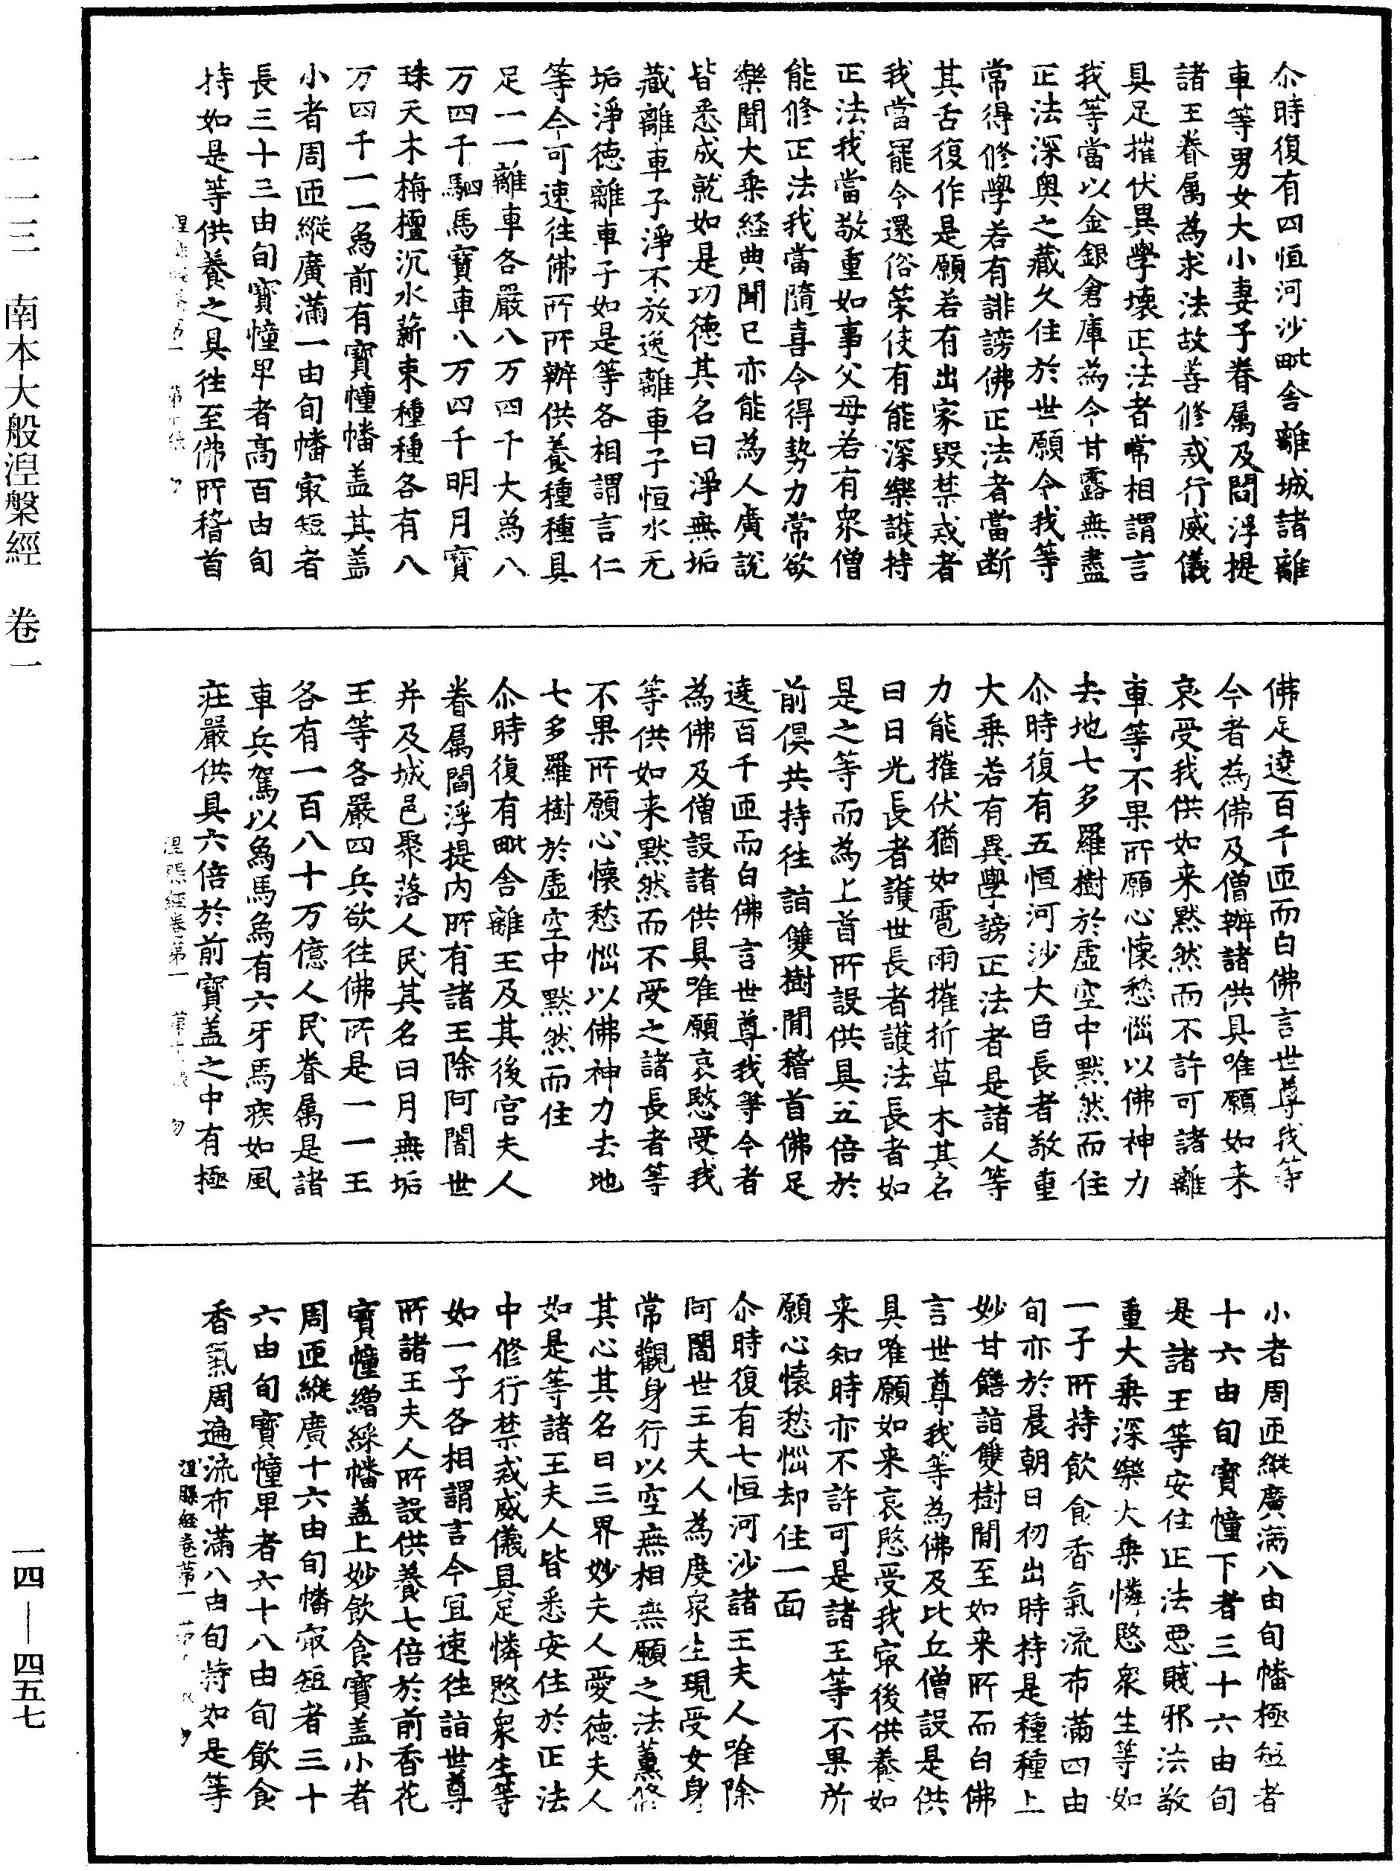 尒時復有四恒河沙毗舍離城諸離
車等男女大小妻子眷属及閻浮提
諸王眷属為求法故善修戒行威儀
具足摧伏異學壞正法者常相謂言
我等當以金銀倉庫為令甘露無盡
正法深奥之藏久住於世願令我等
常得修學若有誹謗佛正法者當断
其舌復作是願若有出家毀禁戒者
我當罷令還俗榮使有能深樂護持
正法我當敬重如事父母若有衆僧
能修正法我當隨喜令得勢力常欲
樂聞大乘経典聞已亦能為人廣說
皆悉成就如是功徳其名曰淨無垢
藏離車子淨不放逸離車子恒水无
垢淨徳離車子如是等各相謂言仁
等今可速往佛所所辦供養種種具
足一一離車各嚴八万四千大為八
万四千駟馬寶車八万四千明月寶
珠天木栴檀沉水薪束種種各有八
万四千一一為前有寶幢幡盖其盖
小者周匝縱廣滿一由旬幡㝡短者
長三十三由旬寶幢卑者髙百由旬
持如是等供養之具往至佛所稽首
佛足遶百千匝而白佛言世尊我等
今者為佛及僧辦諸供具唯願如来
哀受我供如来黙然而不許可諸離
車等不果所願心懷愁惱以佛神力
去地七多羅樹於虛空中黙然而住
尒時復有五恒河沙大臣長者敬重
大乗若有異學謗正法者是諸人等
力能摧伏猶如雹雨摧折草木其名
曰日光長者護世長者護法長者如
是之等而為上首所設供具五倍於
前俱共持往詣雙樹間稽首佛足
遶百千匝而白佛言世尊我等今者
為佛及僧設諸供具唯願哀愍受我
等供如来黙然而不受之諸長者等
不果所願心懷愁惱以佛神力去地
七多羅樹於虛空中黙然而住
尒時復有毗舍離王及其後宫夫人
眷属閻浮提内所有諸王除阿闍世
并及城邑聚落人民其名曰月無垢
王等各嚴四兵欲往佛所是一一王
各有一百八十万億人民眷属是諸
車兵駕以為馬為有六牙馬疾如風
莊嚴供具六倍於前寶盖之中有極
小者周匝縱廣滿八由旬幡極短者
十六由旬寶幢下者三十六由旬
是諸王等安住正法惡賤邪法敬
重大乘深樂大乗憐愍衆生等如
一子所持飲食香氣流布滿四由
旬亦於晨朝日初出時持是種種上
妙甘饍詣雙樹間至如来所而白佛
言世尊我等為佛及比丘僧設是供
具唯願如来哀愍受我㝡後供養如
来知時亦不許可是諸王等不果所
願心懷愁惱却住一面
尒時復有七恒河沙諸王夫人唯除
阿闍世王夫人為度衆生現受女身
常觀身行以空無相無願之法薰修
其心其名曰三界妙夫人愛徳夫人
如是等諸王夫人皆悉安住於正法
中修行禁戒威儀具足憐愍衆生等
如一子各相謂言今宜速往詣世尊
所諸王夫人所設供養七倍於前香花
寶幢繒綵幡盖上妙飲食寶盖小者
周匝縱廣十六由旬幡㝡短者三十
六由旬寶幢卑者六十八由旬飲食
香氣周遍流布滿八由旬持如是等
一一三 南本大般涅槃經 卷一
一四—四五七